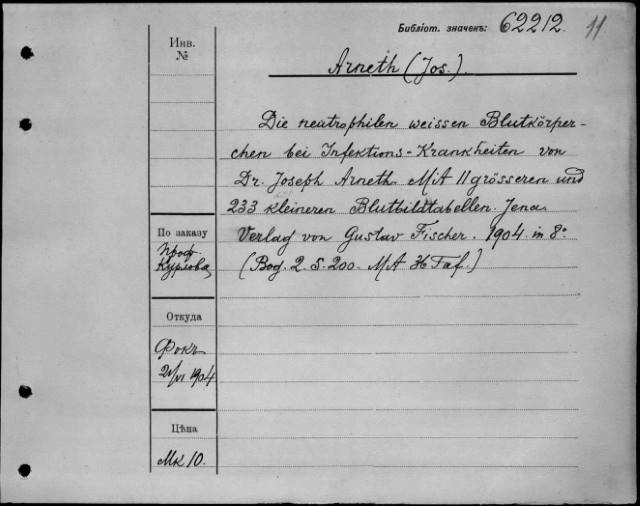 Библіот. значекъ: 62212. 11
Инв.
№
Arneth (Jos.).
Die neutrophilen weissen Blutkörper-
chen bei Infektions-Krankheiten von
Dr. Joseph Arneth. Mit 11 grösseren und
233 kleineren Blutbildtabellen. Jena.
Verlag von Gustav Fischer. 1904. in 8°
(Bog. 2. S. 200. Mit Taf.)
По заказу
Проф.
Курлова
Откуда
Фокъ
1904
Цѣна
Мк 10.